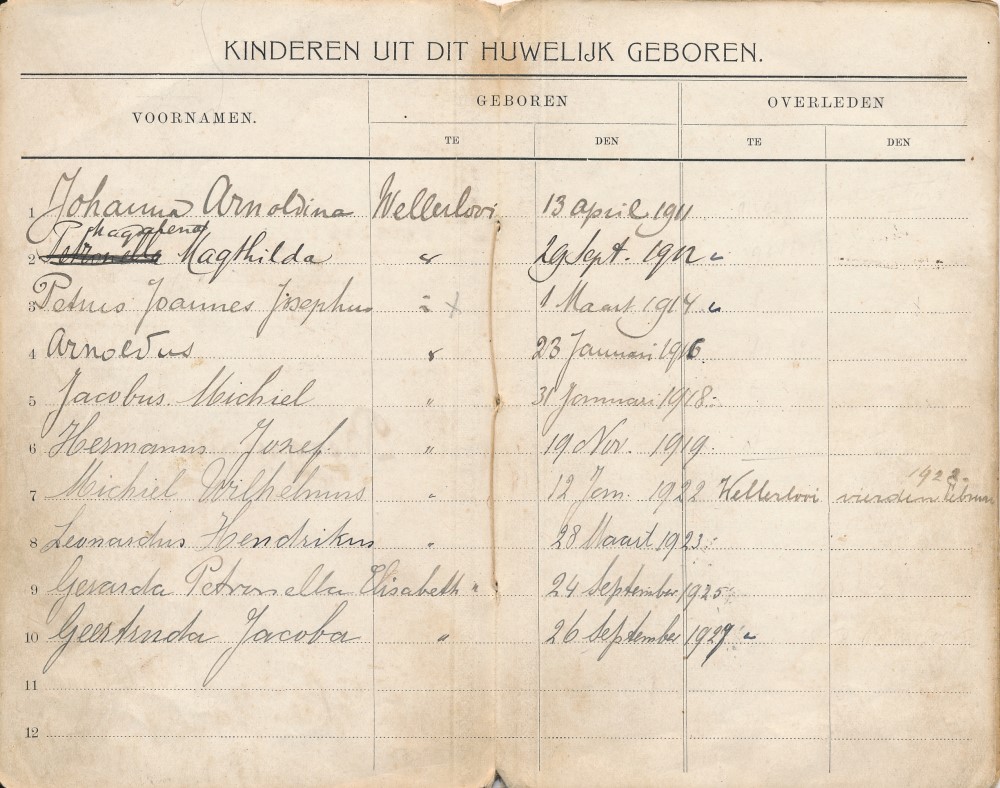 KINDEREN UIT DIT HUWELIJK GEBOREN.
VOORNAMEN. GEBOREN OVERLEDEN
TE DEN TE DEN
1 Johanna Arnoldina Wellerlooi 13 april 1911
Magdalena
2 Petronella Magthilda " 29 Sept. 1912 "
3 Petrus Joannes Josephus " x 1 Maart 1914 "
4 Arnoldus " 23 Januari 1916
5 Jacobus Michiel " 31 Januari 1918
6 Hermanus Jozef " 19 Nov. 1919
1922
7 Michiel Wilhelmus " 12 Jan. 1922 Wellerlooi vierden Februari
8 Leonardus Hendrikus " 28 Maart 1923
9 Gerarda Petronella Elisabeth " 24 September 1925
10 Geertruda Jacoba " 26 September 1927 "
11
12